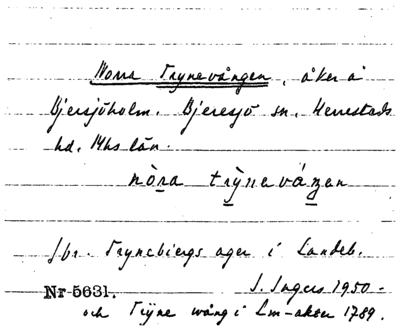 Norra Trynevången, åker å
Bjersjöholm. Bjeresjö sn. Herrestads
hd. Mhs län.
nòra trỳneváŋen
Jbr. Trynebiergs ager i Landeb.
Nr 5631. J. Ingers 1950.
och Trÿne wång i Lm-akter 1789.